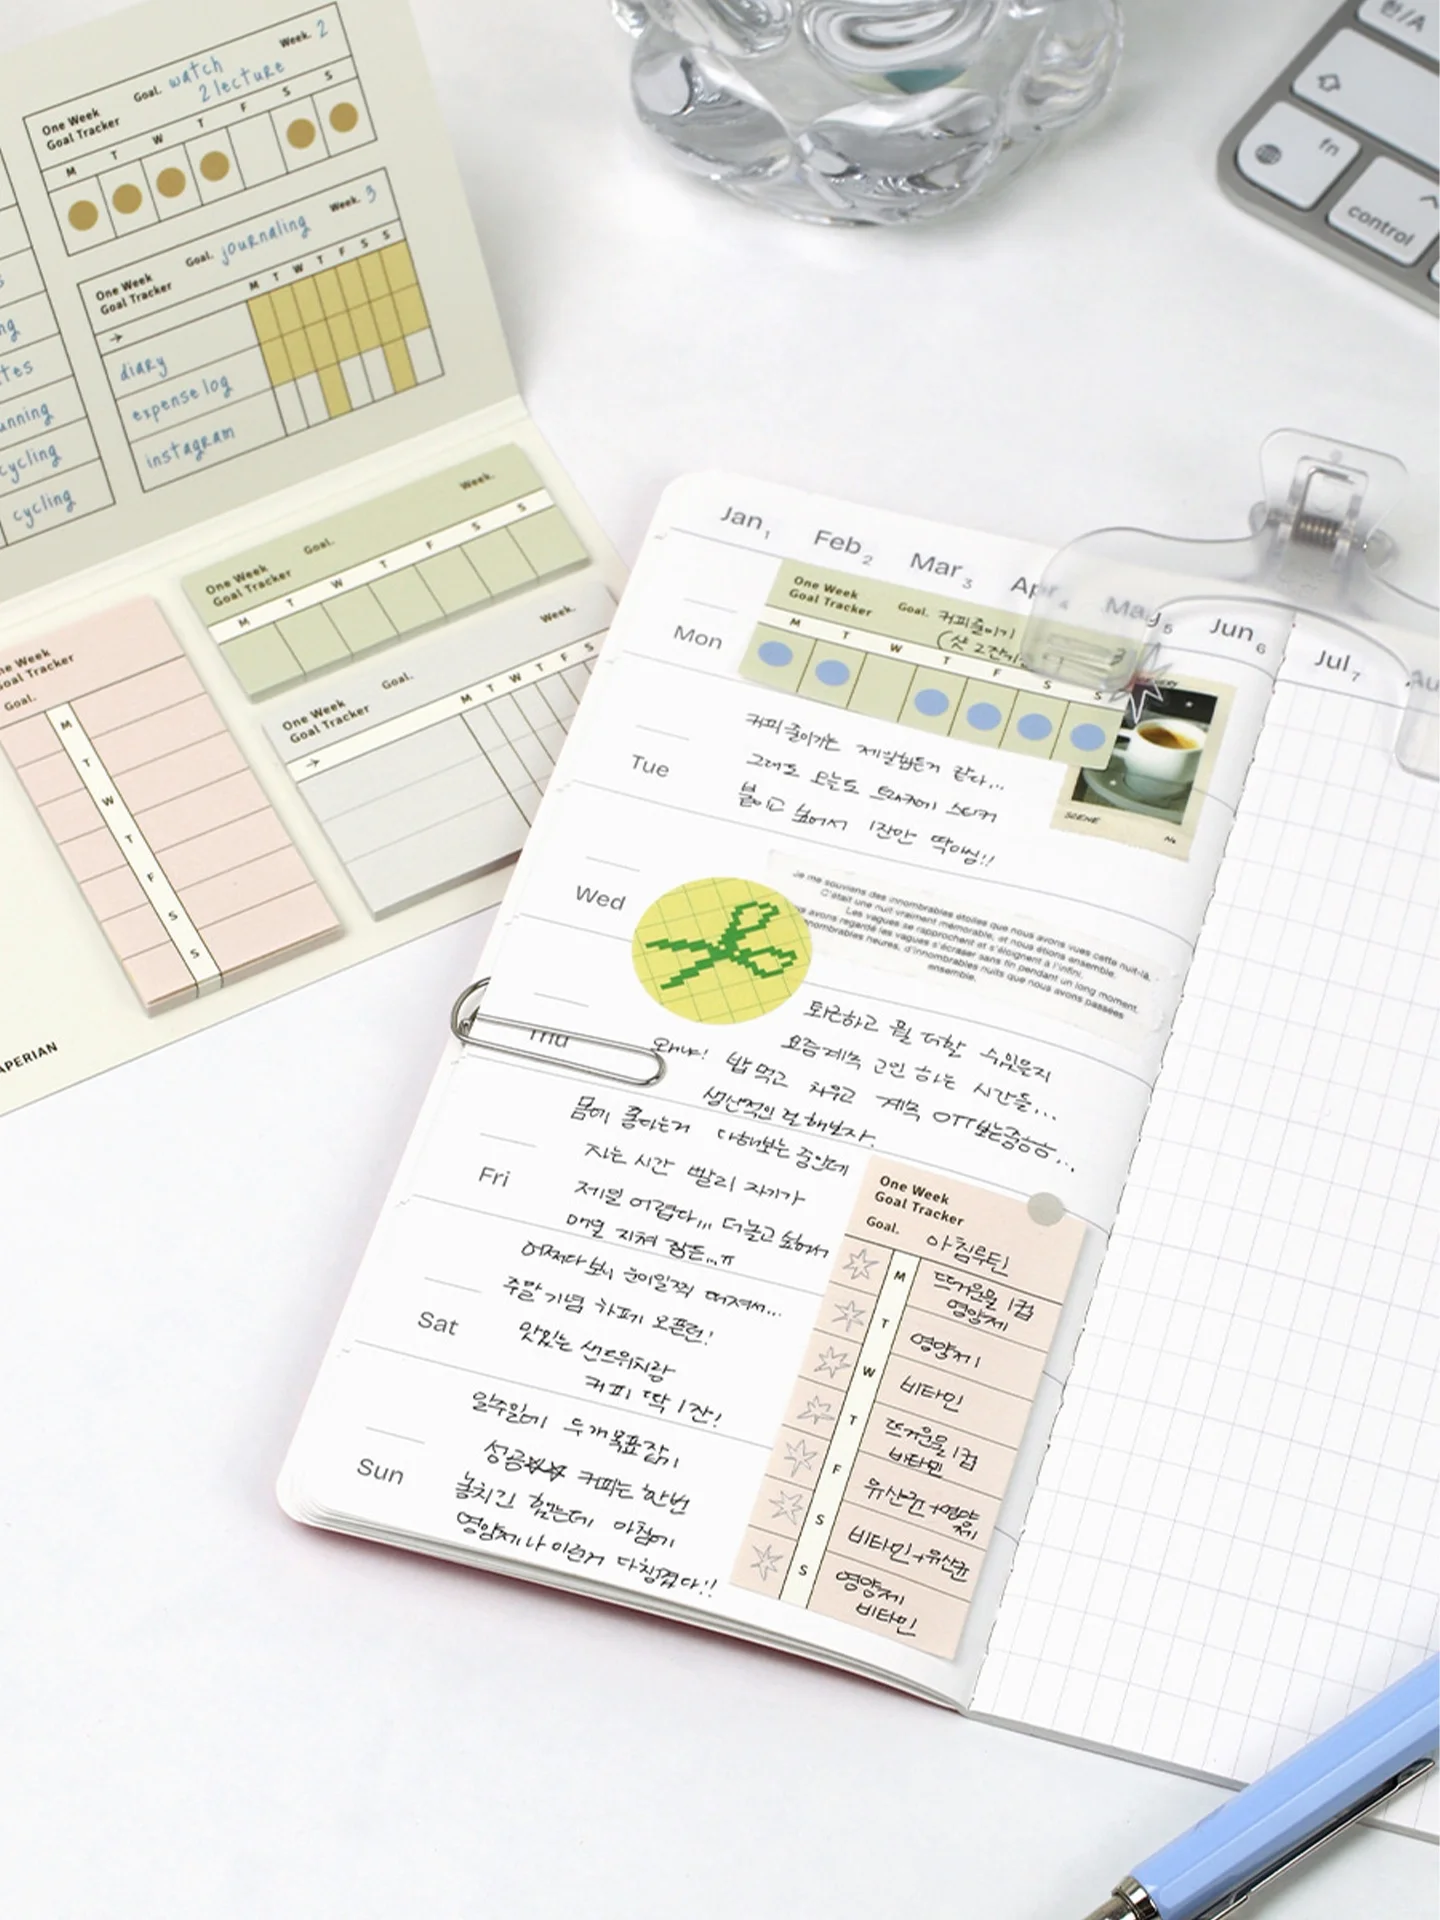 One Week
Goal Tracker
Goal. watch
2 lecture
Week. 2
M T W T F S S
One Week
Goal Tracker
Goal. journaling
Week. 3
M T W T F S S
→
diary
expense log
instagram
cycling
cycling
One Week
Goal Tracker
Goal.
Week.
M T W T F S S
One Week
Goal Tracker
Goal.
Week.
M T W T F S S
→
Week
Tracker
Goal.
M
T
W
T
F
S
S
한/A
fn
control
Jan 1
Feb 2
Mar 3
Apr 4
May 5
Jun 6
Jul 7
Mon
Tue
Wed
Thu
Fri
Sat
Sun
One Week
Goal Tracker
Goal. 커피줄이기
M T W T F S S
커피 줄이기는 제일힘든거 같다...
그래도 오늘도 트래커에 스티커
붙이고 싶어서 1잔만 딱마심!!
SCENE
No
Je me souviens des innombrables étoiles que nous avons vues cette nuit-là.
C'était une nuit vraiment mémorable, et nous étions ensemble.
Les vagues se rapprochent et s'éloignent à l'infini.
avons regardé les vagues s'écraser sans fin pendant un long moment.
innombrables heures, d'innombrables nuits que nous avons passées
ensemble.
퇴근하고 뭘 더할 수있을지
요즘계속 고민 하는 시간들...
왜냐! 밥 먹고 치우고 계속 OTT보는중ㅎㅎ...
생산적인 걸 해보자.
몸에 좋다는거 다해보는 중인데
자는 시간 빨리 자기가
제일 어렵다... 더놀고 싶어서
매일 지쳐 잠듦..ㅠ
어쩌다보니 눈이일찍 떠져서...
주말 기념 카페 오픈런!
맛있는 샌드위치랑
커피 딱 1잔!
일주일에 두개목표잡기
성공 커피는 한번
놓치긴 했는데 아침에
영양제나 이런거 다챙겼다!!
One Week
Goal Tracker
Goal.
아침루틴
M 뜨거운물 1컵
영양제
T 영양제
W 비타민
T 뜨거운물 1컵
비타민
F 유산균+영양제
S 비타민+유산균
S 영양제
비타민